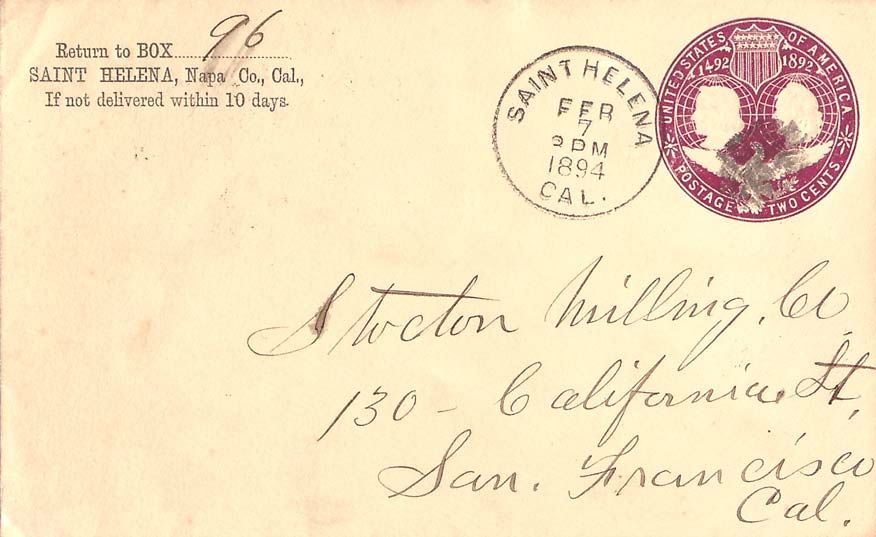 Return to BOX 96
SAINT HELENA, Napa Co., Cal.,
If not delivered within 10 days.
SAINT HELENA
FEB
7
PM
1894
CAL.
UNITED STATES OF AMERICA
1492 1892
POSTAGE TWO CENTS
Stocton Milling, Co
130 - California St,
San. Francisco
Cal.